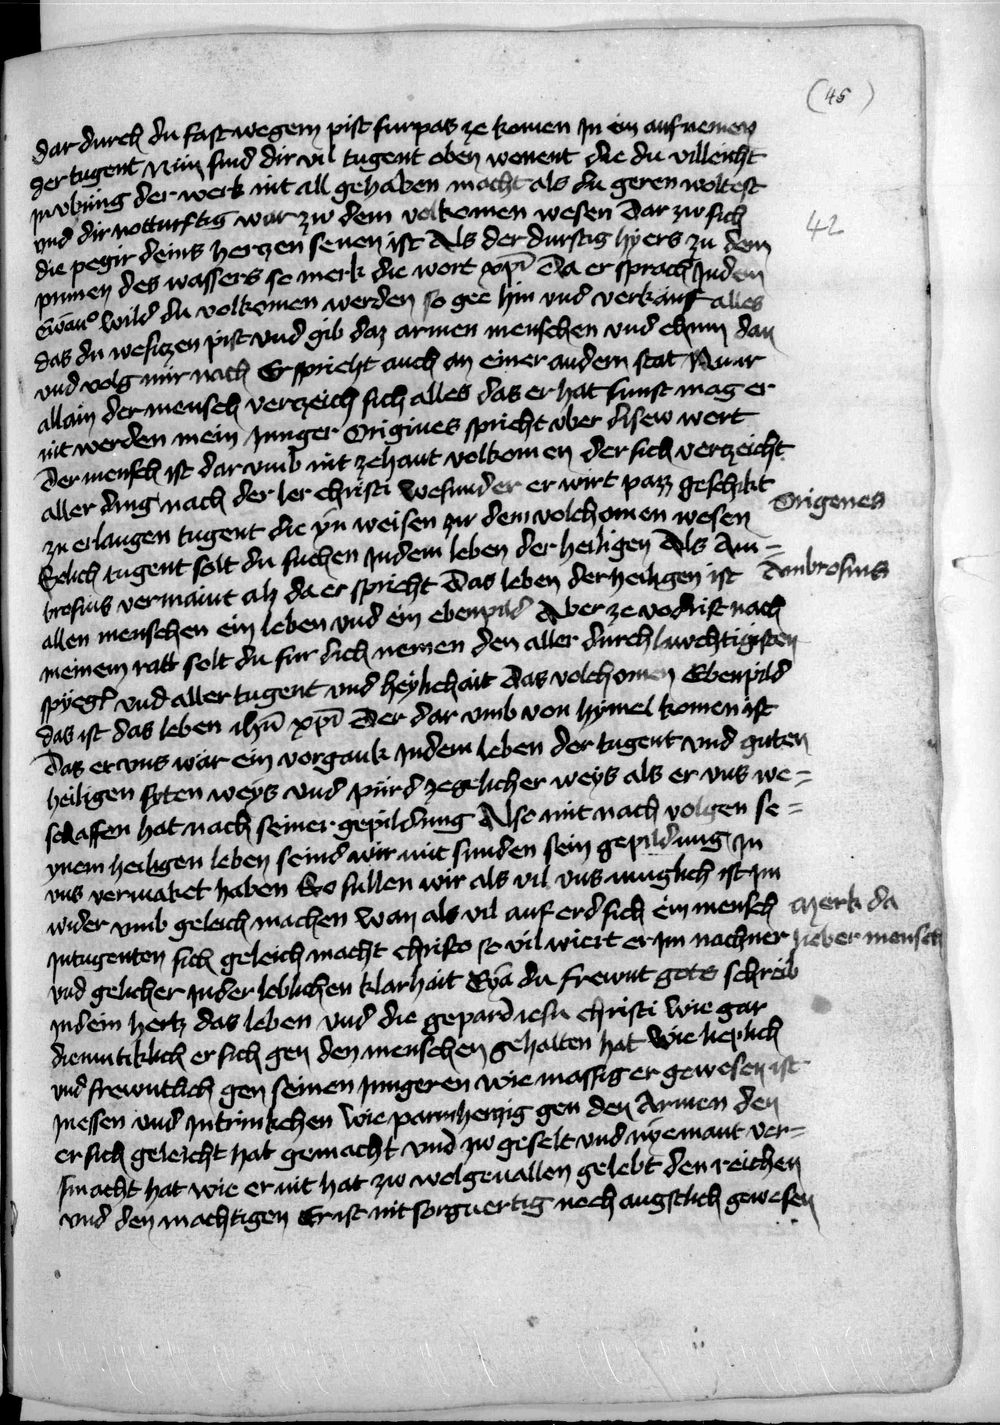 (45)
42
dar durch du fast wegern pist furpas ze komen In ein aufnemen
der tugent Nun sind dir vil tugent oben wenent die du villeicht
In vbung der werk nit all gehaben macht als du geren woltest
vnd dir notturftig war zw dem volkomen wesen Dar zw sich
die pegir deins hertzen senen ist Als der durstig hyers zu dem
prunen des wassers so merk die wort xpi Da er sprach In dem
Ewau° wild du volkomen werden so gee hin vnd verkauf alles
das du wesiczen pist vnd gib daz armen menschen vnd chum dan
vnd volg mir nach Er spricht auch an einer andern stat Nuar
allain der mensch verczeich sich alles das er hat sunst mag er
nit werden mein Junger Origines spricht vber disew wort
Der mensch ist dar vmb nit zehant volkomen der sich verczeicht
aller ding nach der ler christi wesunder er wirt pazz geschikt
zu erlangen tugent die yn weisen zur dem volchomen wesen
Origenes
Solich tugent solt du suchen In dem leben der heiligen Als Am=
brosius vermaint alz da er spricht Das leben der heiligen ist
Ambrosius
allen menschen ein leben vnd ein ebenpild Aber ze vodrist nach
meinem ratt solt du fur dich nemen den aller durchluechtigisten
spyegl vnd aller tugent vnd heylichait Das volchomen Ebenpild
das ist das leben ihu xpi Der dar vmb von hymel komen ist
Das er vns war ein vorgank In dem leben der tugent vnd guten
heiligen syten weys vnd pürd zegelicher weys als er vns we=
schaffen hat nach seiner gepildung Also mit nach volgen se=
ynem heiligen leben seind wir mit sunden sein gepildung In
vns vermaket haben So sullen wir als vil vns muglich ist Im
wider vmb geleich machen wan als vil auf erd sich ein mensch
Merk da
In tugenten sich geleich macht christo so vil wiert er Im nachner
lieber mensch
vnd gelicher In der leblichen klarhait Eya du frewnt gots schreib
In dein hertz das leben vnd die gepard iesu christi wie gar
diemutiklich er sich gen den menschen gehalten hat wie lieplich
vnd frewntlich gen seinen Jungeren wie massig er gewesen ist
In essen vnd In trinkchen wie parmherczig gen den Armen den
er sich geleicht hat gemacht vnd zw geselt vnd nyemant ver=
smacht hat wie er nit hat zw wolgeuallen gelebt den reichen
vnd den machtigen Er ist nit sorguertig noch angstlich gewesen